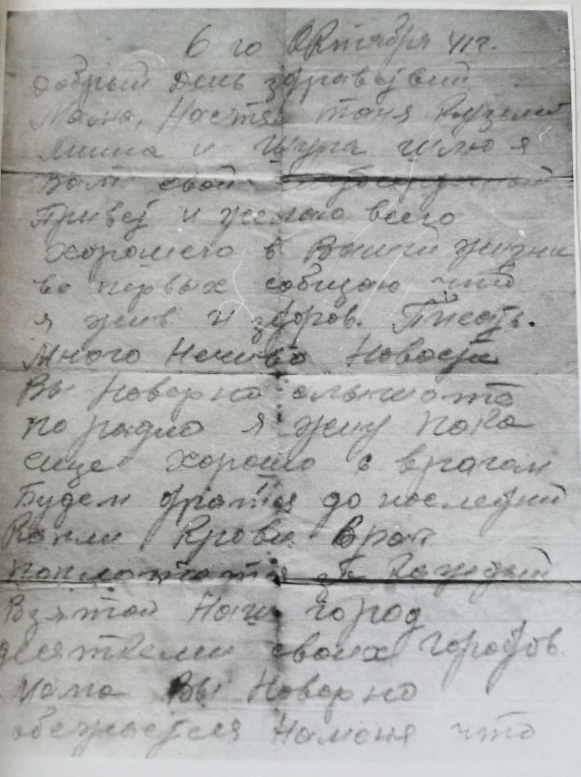 6 го Октября 41 г.
Добрый день здравствуй
Мама, Настя Таня Кузьма
Миша и Шура шлю я
Вам свой
Привет и желаю всего
хорошего в Вашей жизни
во первых сообщаю что
я жив и здоров. Писать
много Нечево Новости
Вы Наворно слышате
по радио я живу пока
еще хорошо с врагом
Будем дратся до последней
Капли Крови. Враг
поплатится за Каждый
Взятой Наш город
десятками своих городов.
Мама Вы Наворно
обежаетеся Наменя что